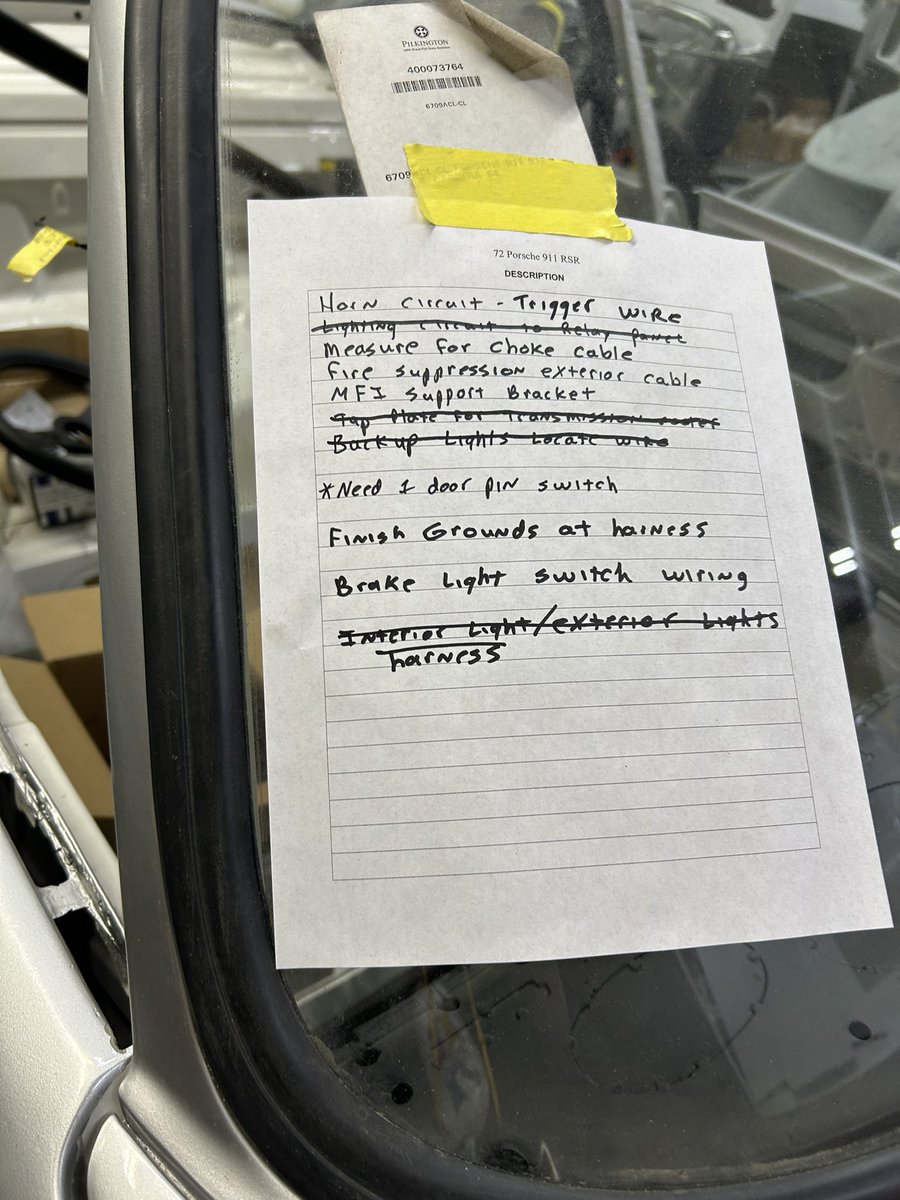 PILKINGTON
400073764
6709ACL-CL
6709
72 Porsche 911 RSR
DESCRIPTION
Horn circuit - Trigger wire
Lighting circuit to Relay panel
Measure for choke cable
fire suppression exterior cable
MFI support Bracket
Tap Plate for Transmission
Backup Lights Locate wire
*Need 1 door pin switch
Finish Grounds at harness
Brake Light switch wiring
Interior Light/exterior Lights
harness